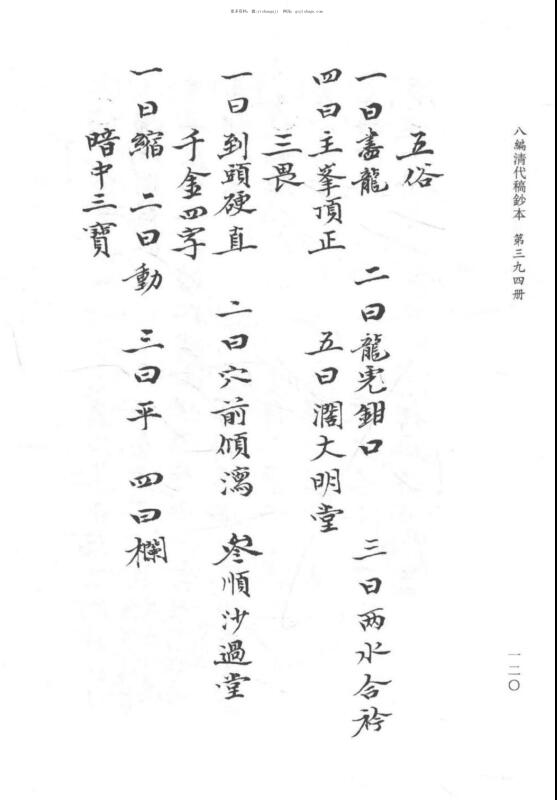 八編清代稿鈔本 第三九四册
一二〇
五俗
一曰盡龍 二曰龍虎鉗口 三曰兩水合衿
四曰主峯頂正 五曰濶大明堂
三畏
一曰到頭硬直 二曰穴前傾瀉 叁順沙過堂
千金四字
一曰縮 二曰動 三曰平 四曰欄
暗中三寶